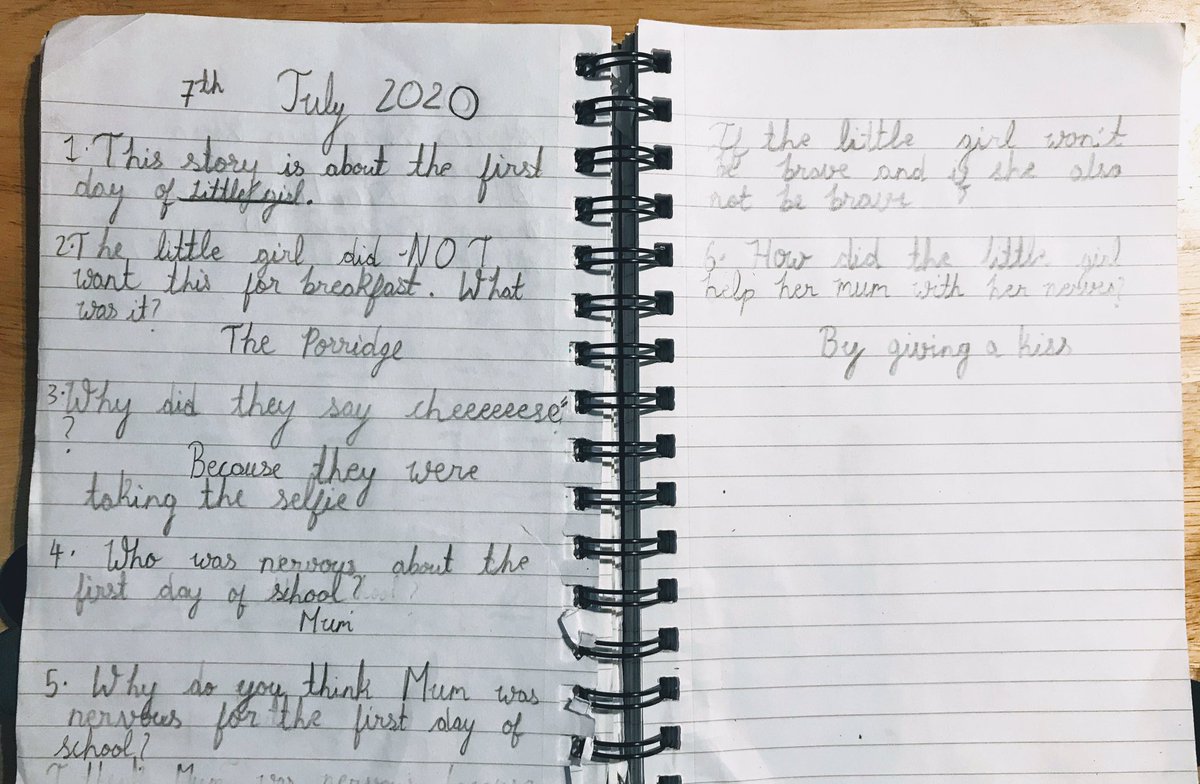 7th July 2020
1. This story is about the first
day of little girl.
2. The little girl did NOT
want this for breakfast. What
was it?
The Porridge
3. Why did they say cheeeeeese
?
Because they were
taking the selfie
4. Who was nervous about the
first day of school?
Mum
5. Why do you think Mum was
nervous for the first day of
school?
I think Mum was nervous because
If the little girl won't
be brave and if she also
not be brave
6. How did the little girl
help her mum with her nerves?
By giving a kiss